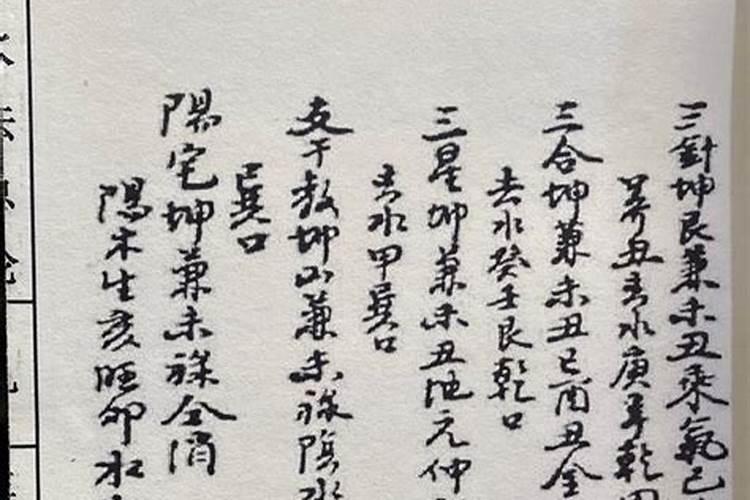 三針坤艮兼未丑乘氣己
丑去水庚辛乾
三合坤兼未丑巳酉丑金
去水癸壬艮乾口
三星坤兼未丑地元仲
去水甲巽口
支干教坤山兼未祿陰水
巳巽口
陽宅坤兼未祿全消
陽木生亥旺卯水